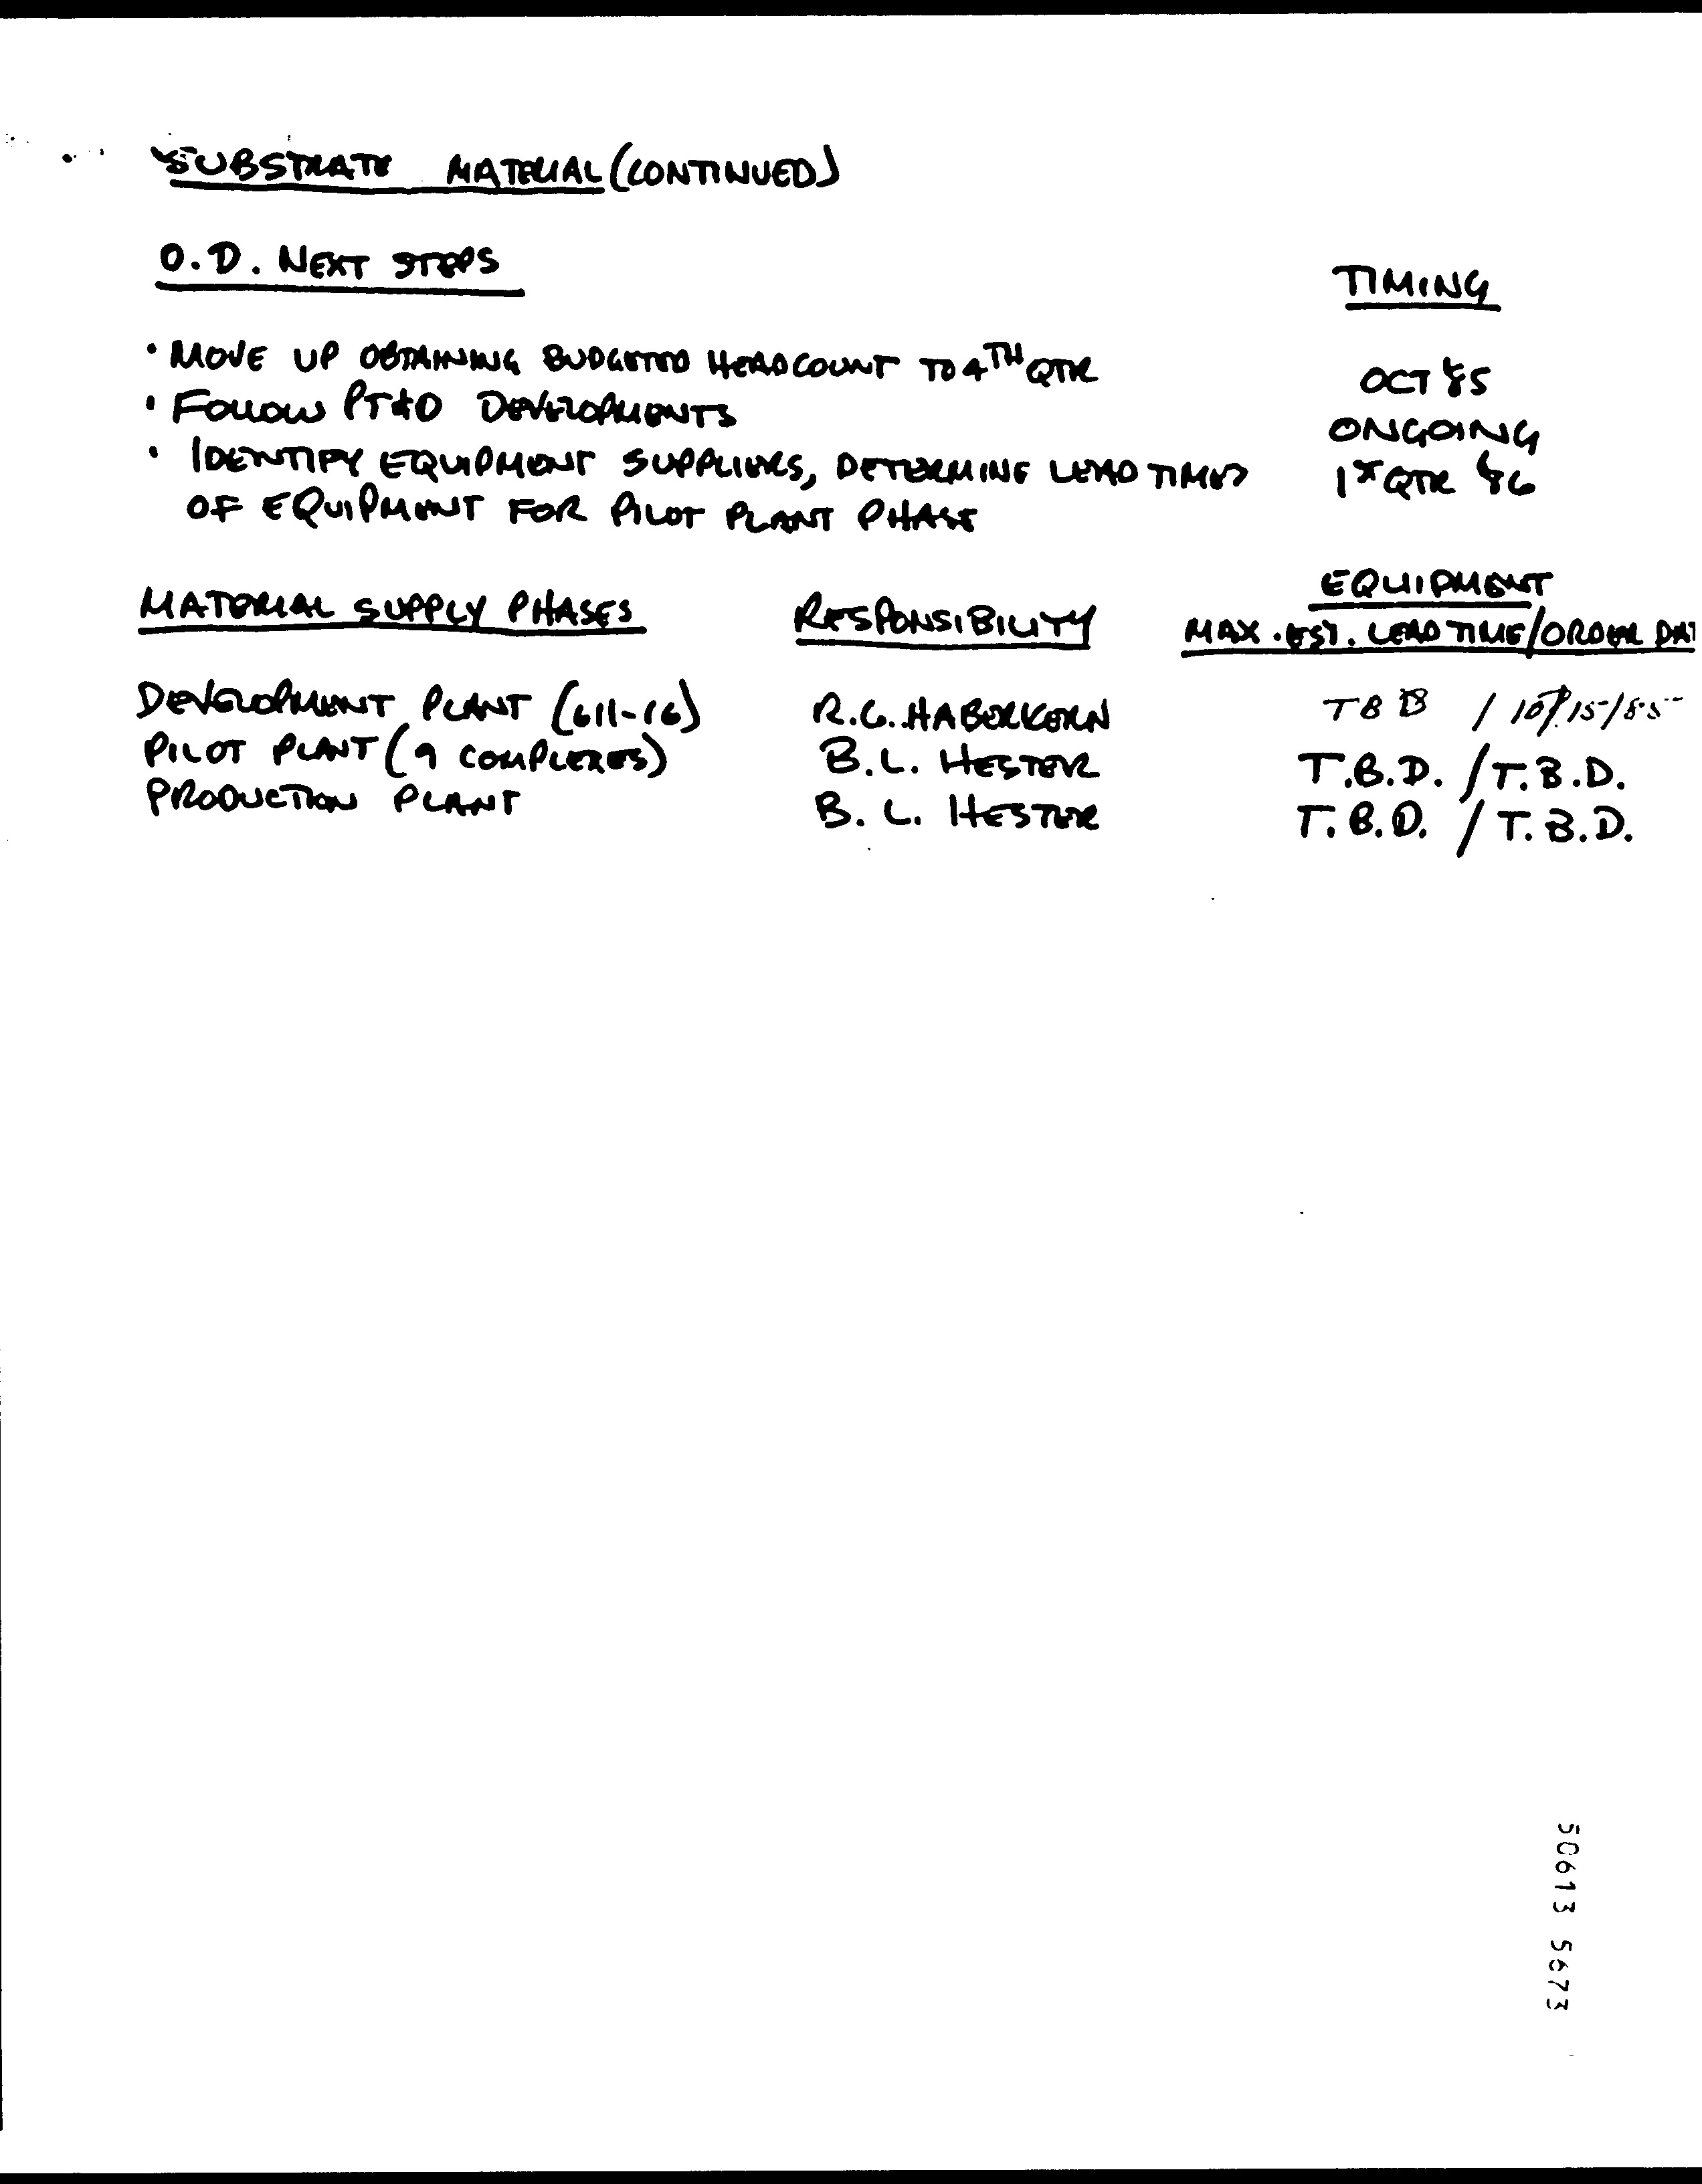 SUBSTRATE MATERIAL (CONTINUED)
O.D. NEXT STEPS
TIMING
• MOVE UP OBTAINING BUDGETED HEADCOUNT TO 4TH QTR OCT '85
• FOLLOW PT&D DEVELOPMENTS ONGOING
• IDENTIFY EQUIPMENT SUPPLIERS, DETERMINE LEAD TIMES 1ST QTR '86
OF EQUIPMENT FOR PILOT PLANT PHASE
EQUIPMENT
MATERIAL SUPPLY PHASES RESPONSIBILITY MAX. EST. LEAD TIME/ORDER DAT
DEVELOPMENT PLANT (611-16) R.G. HABERKERN / 10/15/85
PILOT PLANT (9 COMPLEXES) B.L. HESTER T.B.D. / T.B.D.
PRODUCTION PLANT B. L. HESTER T.B.D. / T.B.D.
50613 5673